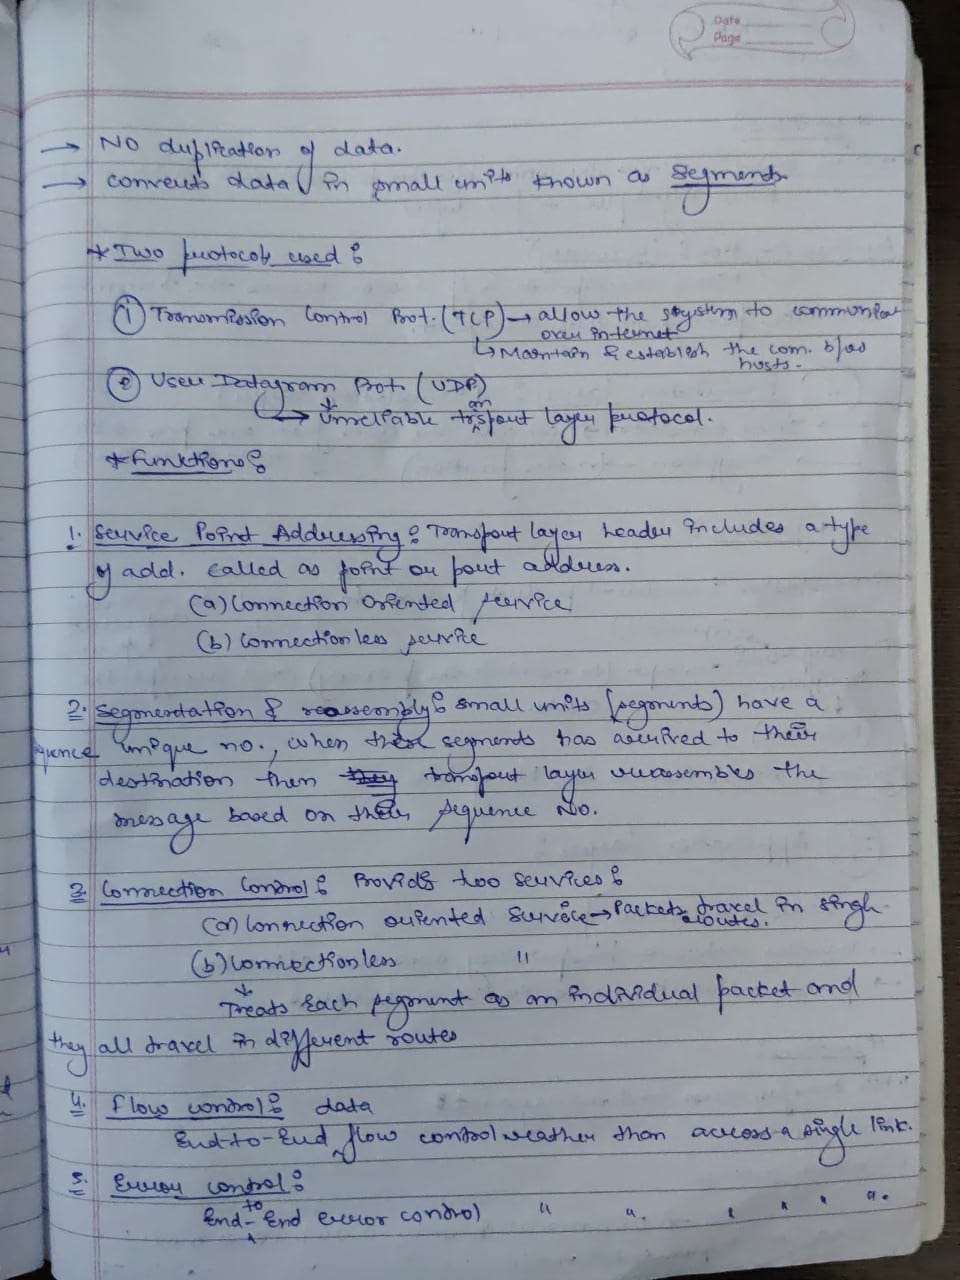 Date
Page
→ No duplication of data.
→ converts data in small units known as segments
* Two protocols used:
① Transmission Control Prot. (TCP) → allow the system to
over internet
↳ Maintain & establish the com. b/w
hosts.
② User Datagram Prot. (UDP)
an
→ Unreliable trsport layer protocol.
* Functions:
1. Service Point Addressing: Transport layer header includes a type
of add. called as point or port address.
(a) Connection Oriented service
(b) Connection less service
2. Segmentation & reassembly: small units (segments) have a
unique no., when these segments has arrived to their
destination then transport layer reassembles the
message based on their sequence No.
3. Connection Control: Provids two services:
(a) Connection oriented Service → Packets travel in single
routes.
(b) Connectionless "
↓
Treats Each segment as an individual packet and
they all travel in different routes
4. Flow control: data
End-to-End flow control reather than across a single link.
5. Error control:
to
End-End error control " " " " " ".